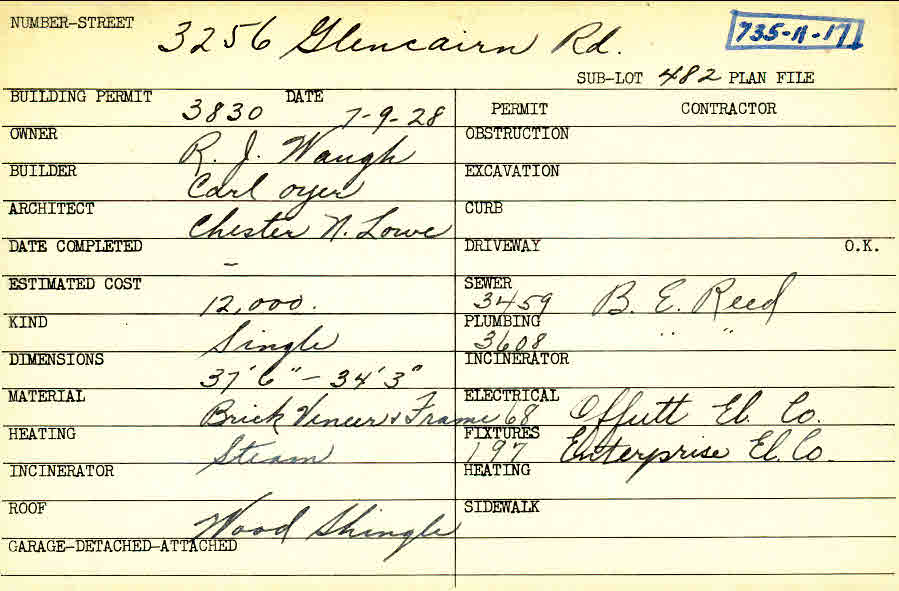 NUMBER-STREET 3256 Glencairn Rd. 735-11-17
SUB-LOT 482 PLAN FILE
BUILDING PERMIT 3830 DATE 7-9-28 PERMIT CONTRACTOR
OWNER R. J. Waugh OBSTRUCTION
BUILDER Carl Oyer EXCAVATION
ARCHITECT Chester N. Lowe CURB
DATE COMPLETED - DRIVEWAY O.K.
ESTIMATED COST 12,000. SEWER 3459 B. E. Reed
KIND Single PLUMBING 3608 " "
DIMENSIONS 37'6" - 34'3" INCINERATOR
MATERIAL Brick Vineer & Frame ELECTRICAL 68 Offutt El. Co.
HEATING Steam FIXTURES 197 Enterprise El. Co.
INCINERATOR HEATING
ROOF Wood Shingle SIDEWALK
GARAGE-DETACHED-ATTACHED